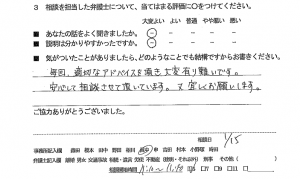 3 相談を担当した弁護士について、当てはまる評価に○をつけてください。
大変よい よい 普通 やや悪い 悪い
■ あなたの話をよく聞きましたか。
■ 説明は分かりやすかったですか。
■ 気がついたことがありましたら、どのようなことでも結構ですからお書きください。
毎回、適切なアドバイスを頂き大変有り難いです。
安心して相談させて頂いています。又宜しくお願いします。
ご協力ありがとうございました。
相談日 1/15
事務所記入欄
弁護士記入欄 離婚 男女 交通事故